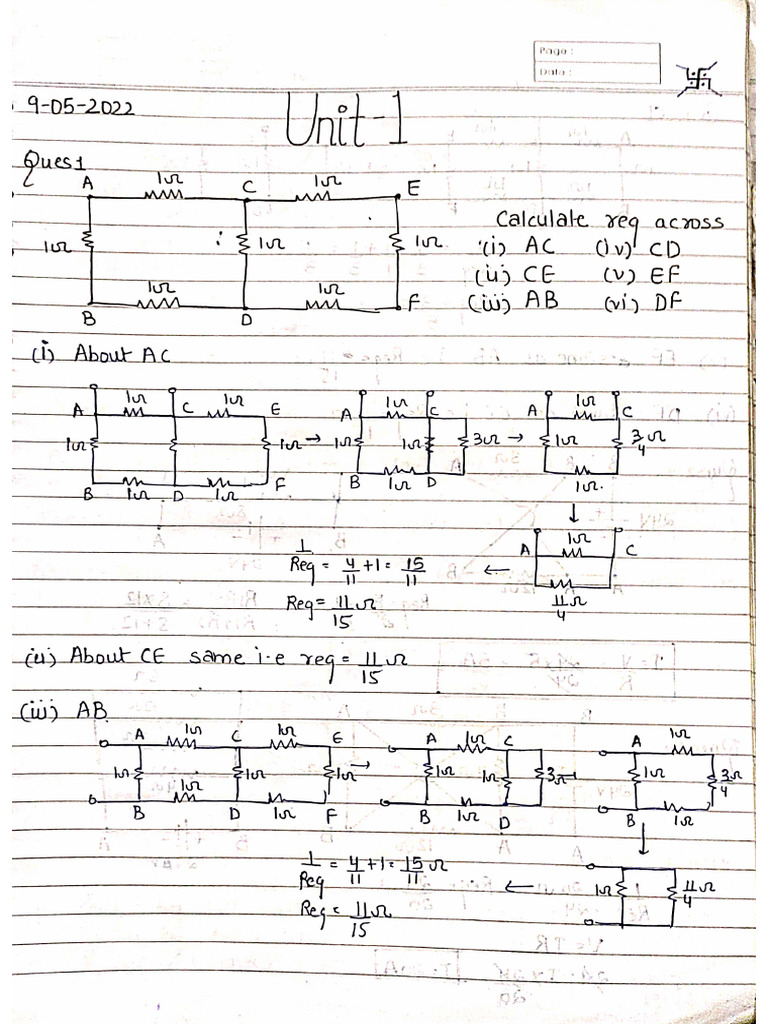 Page :
Date :
9-05-2022
Unit-1
Ques 1
A 1Ω C 1Ω E
1Ω 1Ω 1Ω
1Ω 1Ω
B D F
Calculate req across
(i) AC (iv) CD
(ii) CE (v) EF
(iii) AB (vi) DF
(i) About AC
A 1Ω C 1Ω E
1Ω 1Ω →
B 1Ω D 1Ω F
A 1Ω C
1Ω 1Ω 3Ω →
B 1Ω D
A 1Ω C
1Ω 3/4 Ω
1Ω
↓
A 1Ω C
11Ω/4
←
1/Req = 4/11 + 1 = 15/11
Req = 11/15 Ω
(ii) About CE same i.e req = 11/15 Ω
(iii) AB
A 1Ω C 1Ω E
1Ω 1Ω 1Ω →
1Ω
B D 1Ω F
A 1Ω C
1Ω 1Ω 3Ω
B 1Ω D
1Ω
A
1Ω 3Ω/4
B 1Ω
↓
1Ω 11Ω/4
←
1/Req = 4/11 + 1 = 15/11 Ω
Req = 11/15 Ω